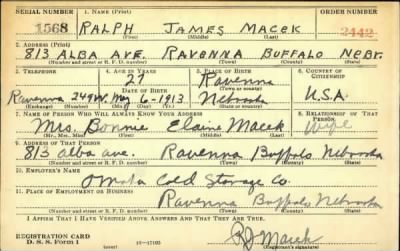 SERIAL NUMBER 1. NAME (Print) ORDER NUMBER
1568 RALPH JAMES MACEK 2442
(First) (Middle) (Last)
2. ADDRESS (Print)
813 ALBA AVE. RAVENNA BUFFALO NEBR.
(Number and street or R. F. D. number) (Town) (County) (State)
3. TELEPHONE 4. AGE IN YEARS 5. PLACE OF BIRTH 6. COUNTRY OF CITIZENSHIP
27 Ravenna
DATE OF BIRTH (Town or county)
Ravenna 249W. May 6-1913 Nebraska U.S.A.
(Exchange) (Number) (Mo.) (Day) (Yr.) (State or country)
7. NAME OF PERSON WHO WILL ALWAYS KNOW YOUR ADDRESS 8. RELATIONSHIP OF THAT PERSON
Mrs. Bonnie Elaine Macek wife
(Mr., Mrs., Miss) (First) (Middle) (Last)
9. ADDRESS OF THAT PERSON
813 alba ave. Ravenna Buffalo Nebraska
(Number and street or R. F. D. number) (Town) (County) (State)
10. EMPLOYER'S NAME
Omaha Cold Storage Co.
11. PLACE OF EMPLOYMENT OR BUSINESS
Ravenna Buffalo Nebraska
(Number and street or R. F. D. number) (Town) (County) (State)
I AFFIRM THAT I HAVE VERIFIED ABOVE ANSWERS AND THAT THEY ARE TRUE.
REGISTRATION CARD
D. S. S. Form 1 16-17105 RJ Macek
(Registrant's signature)